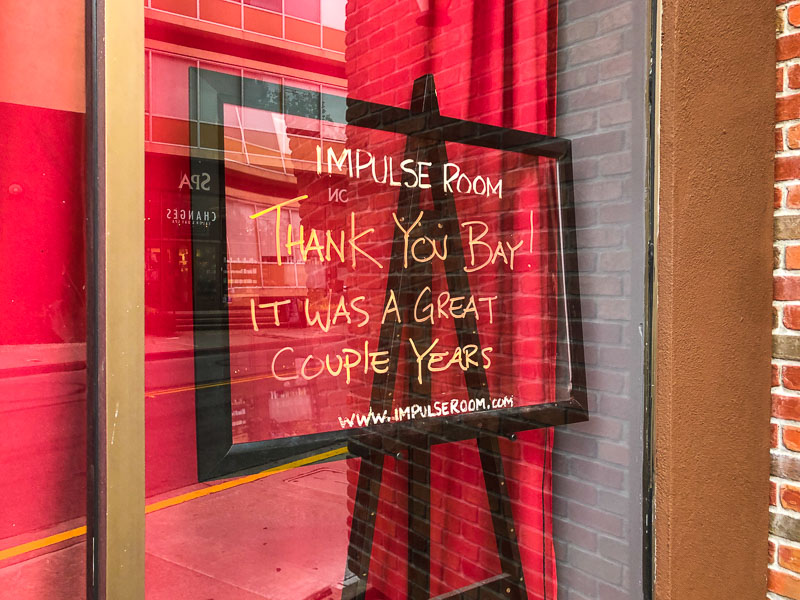 IMPULSE ROOM
THANK YOU BAY!
IT WAS A GREAT
COUPLE YEARS
WWW.IMPULSEROOM.COM
SPA
CHANGES